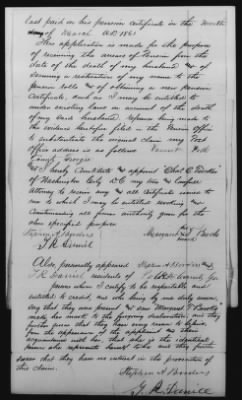 last paid on his pension certificate in the month
day of March A.D. 1861
This application is made for the purpose
of receiving the arrears of Pension from the
date of the death of my husband and of
securing a restoration of my name to the
pension rolls and of obtaining a new Pension
Certificate, and as I may be entitled to
under existing laws on account of the death
of my said husband, reference being made to
the evidence heretofore filed in the Pension Office
to substantiate the original claim my Post
Office address is as follows Polk
County Georgia
I hereby Constitute and appoint Chas C.
of Washington City D.C. my true and Lawful
Attorney to receive any and all Certificate issued to
me to which I may be entitled revoking and
Countermanding all former authority given for the
above specified purpose
Stephen A Borders Margaret Brooks
T. R. Daniel mark
Also, personally appeared Stephen A Borders and
T. R. Daniel residents of Polk County Ga.
persons whom I certify to be respectable and
entitled to credit, and who being by me duly sworn,
say that they was present and saw Margaret Brooks
make her mark to the foregoing declaration and they
further swear that they have every reason to believe,
from the appearance of the applicant and their
acquaintance with her, that she is the identical
person she represents herself to be and they further
swear that they have no interest in the prosecution of
this claim.
Stephen A Borders
T. R. Daniel